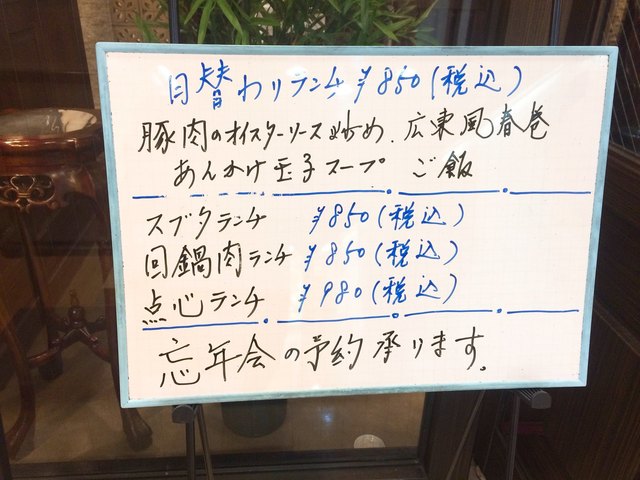 日替わりランチ ¥850(税込)
豚肉のオイスターソース炒め、広東風春巻
あんかけ玉子スープ ご飯
スブタランチ ¥850(税込)
回鍋肉ランチ ¥850(税込)
点心ランチ ¥980(税込)
忘年会の予約承ります。